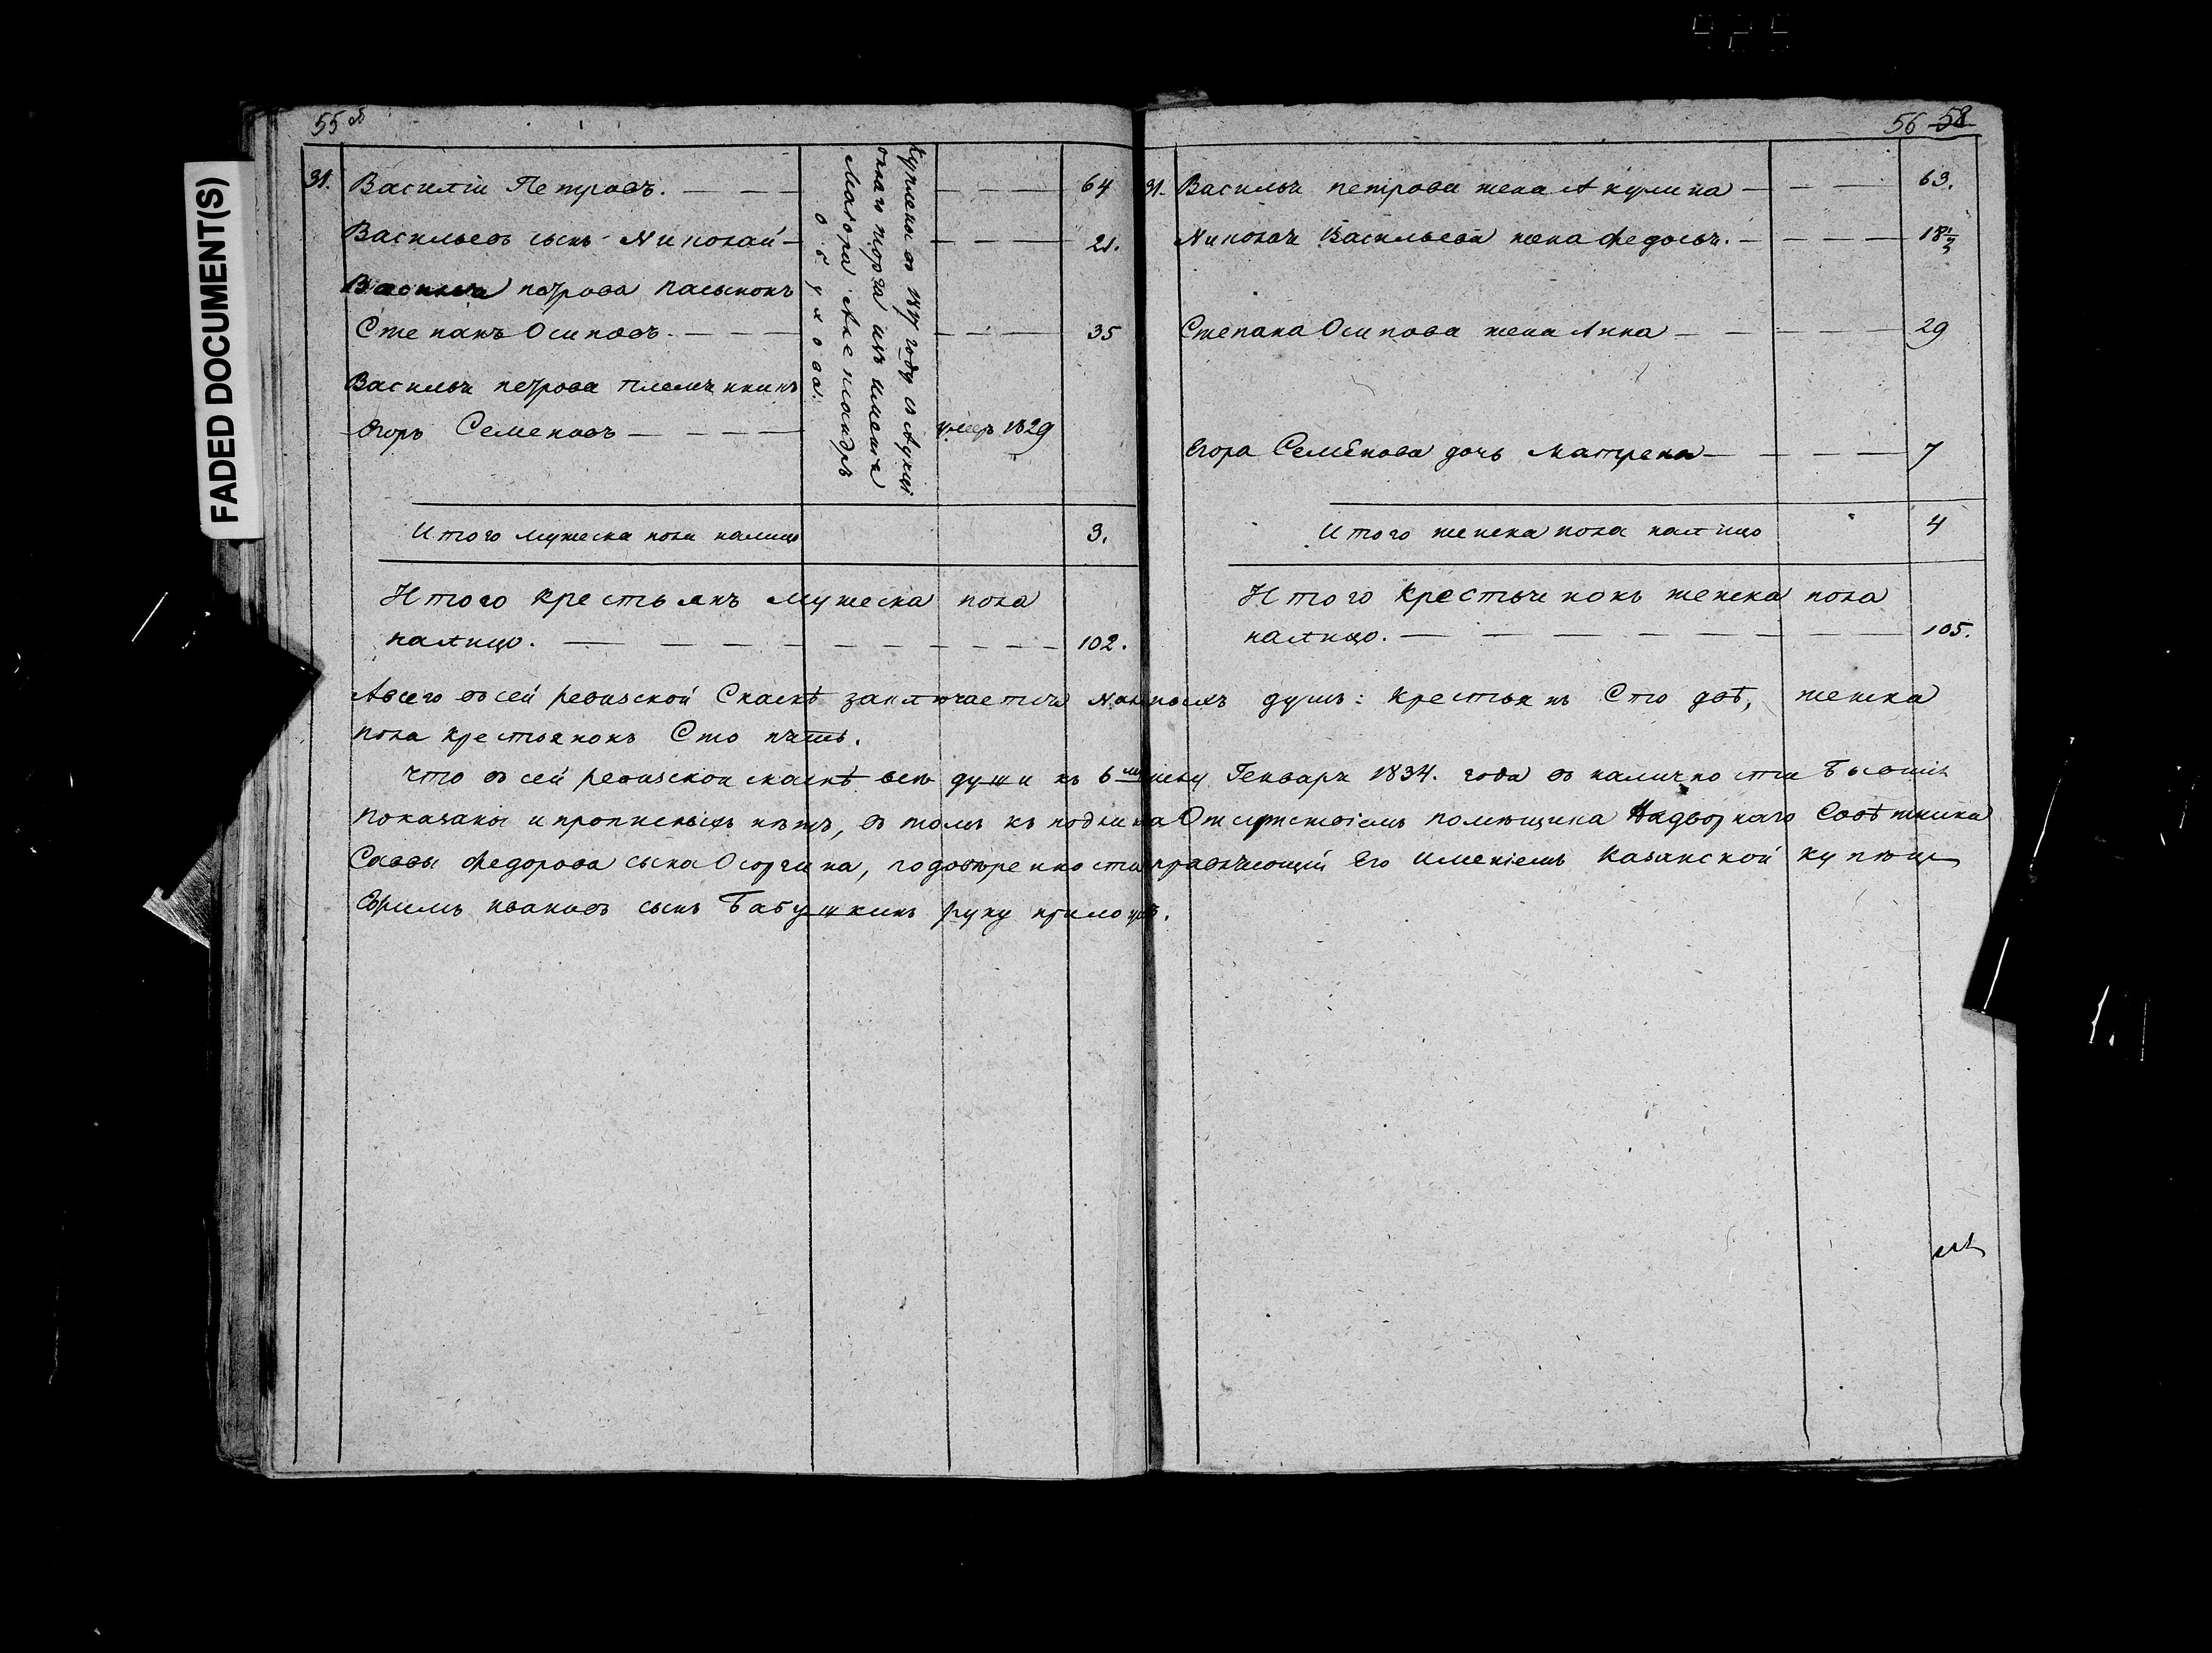 FADED DOCUMENT(S)
55 об
31. Василіи Петровъ. — — — — — 64
Васильевъ сынъ Николай — — — — 21.
Василья петрова пасынокъ
Степанъ Осиповъ. — — — — — 35
Василья петрова племянникъ
Егоръ Семеновъ — — — — умеръ 1829
Куплены въ 1817 году съ Аукці
оннаго торга изъ имения
Маіора Александръ
Обухова.
Итого мужеска пола налицо 3.
Итого крестьянъ мужеска пола
налицо. — — — — — — — — 102.
56 58
31. Василья петрова жена Акулина — — — 63.
Николая Васильева жена Федосья. — — — — 18 1/2
Степана Осипова жена Анна — — — — 29
Егора Семёнова дочь Матрена — — — — 7
Итого женска пола налицо 4
Итого крестьянокъ женска пола
налицо. — — — — — — — — 105.
Авсего въ сей ревизской Сказкѣ заключается наличныхъ душъ: крестьянъ Сто двѣ, женска
пола крестьянокъ Сто пять.
Что въ сей ревизской сказкѣ всѣ души къ 6 му числу Генваря 1834. года въ наличности бывшіе
показаны и прописныхъ нѣтъ, въ томъ къ подлинна Отсутствіемъ помѣщика Надворнаго Совѣтника
Саввы Федорова сына Осоргина, по довѣренности управляющій Его имѣніемъ Казанской купецъ
Ефимъ ивановъ сынъ Бабушкинъ руку приложилъ.